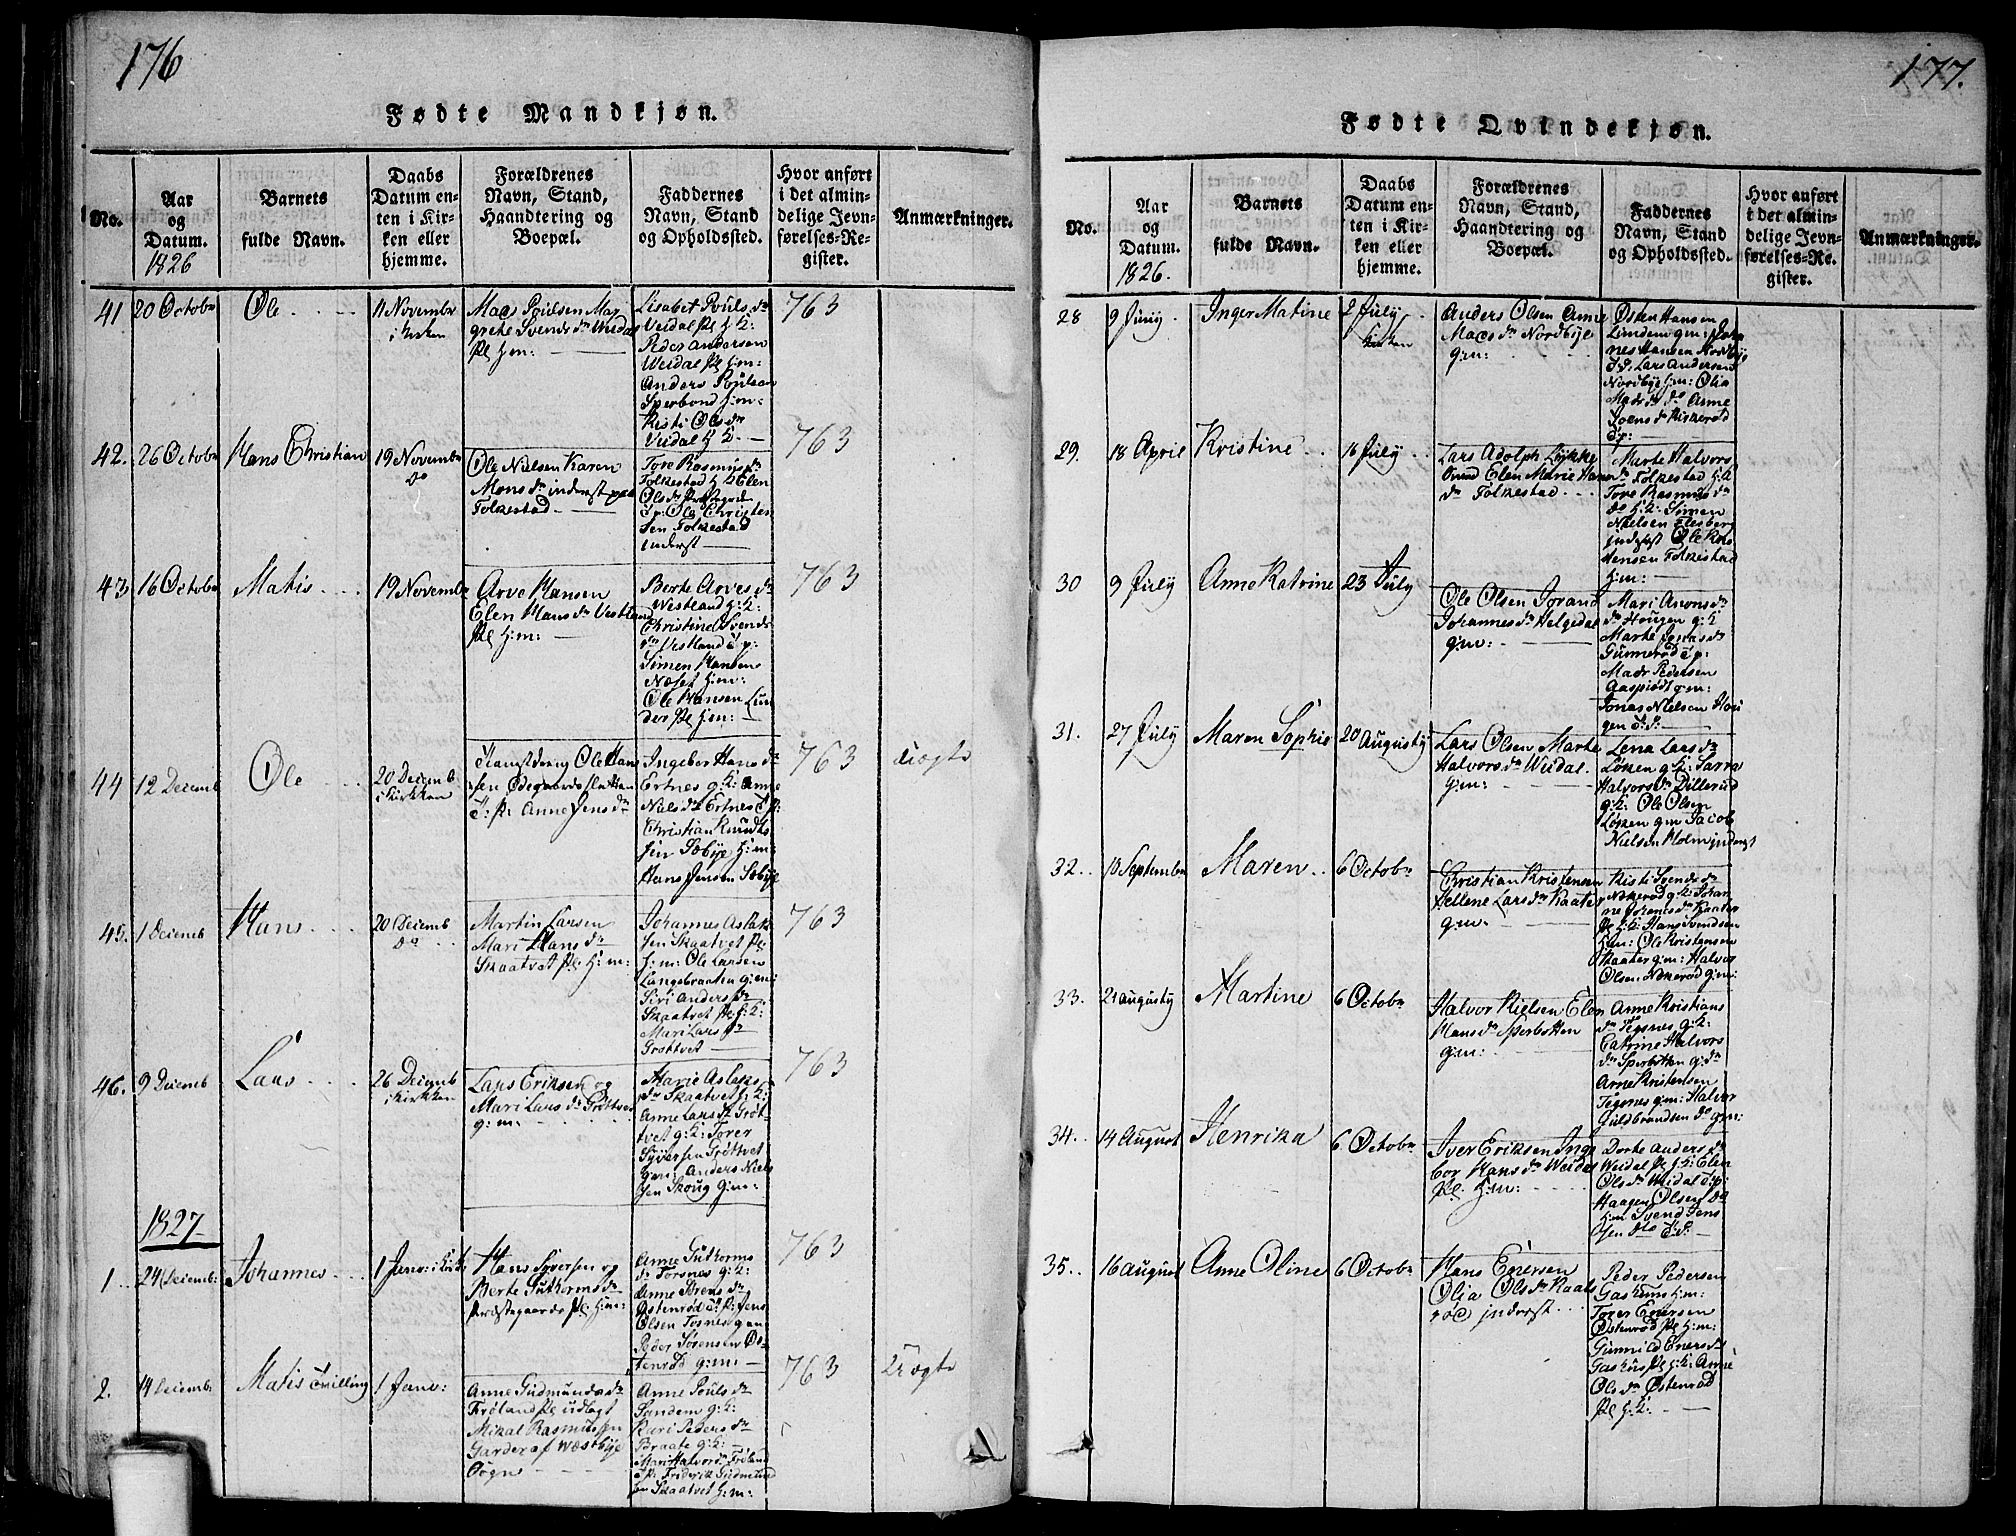 176
Fødte Mandkjøn.
No.
Aar
og
Datum.
1826
Barnets
fulde Navn.
Daabs
Datum en-
ten i Kir-
ken eller
hjemme.
Forældrenes
Navn, Stand,
Haandtering og
Boepæl.
Faddernes
Navn, Stand
og Opholdssted.
Hvor anført
i det almin-
delige Jevn-
førelses-Re-
gister.
Anmærkninger.
41
20 Octobr
Ole
11 Novembr
i kirken
Mads Poulsen Mar
grethe Svends dr Weidal
Pl h:m:
Lisabet Pouls dr
Veidal Pl h k:
Peder Andersen
Weidal Pl h:m:
Anders Poulsen
Sperbond h:m:
Kisti Ols dr
Veidal h k:
763
42.
26 Octobr
Hans Christian
19 Novembr
do
Ole Nielsen Karen
Mons dr inderst paa
Folkestad
Tore Rasmus dr
Folkestad h k Elen
Ols dr Prestegrde
t p: Ole Christen
sen Folkestad
inderst
763
43
16 Octobr
Matis
19 Novembr
Arve Hansen
Elen Hans dr Vestland
Pl h:m:
Berte Arves dr
Westland h:k:
Christine Svends
dr Vestland t p:
Simen Hansen
Næset h:m:
Ole Hansen Lun
der Pl h:m:
763
44
12 Decemb
Ole
20 Decemb
i kirkken
Ole Hans
sen Ødegaards
t: p: Anne Jens dr
Ingebor Hans dr
Ertnes g: k: Anne
Niels dr Ertnes t p:
Christian Knudt
sen Sæbye h:m:
Hans Jensen Sæbye
763
uægte
45.
1 Decemb
Hans
20 Decemb
do
Martin Larsen
Mari Hans dr
Skaatvet Pl: h:m:
Johannes Aslak
sen Skaatvet Pl
h:m: Ole Larsen
Langebraaten g:m:
Siri Anders dr
Skaatvet Pl h:k:
Mari Lars dr
Grøttvet
763
46.
9 Decemb
Lars
26 Decemb
i kirkken
Lars Eriksen og
Mari Lars dr Grøttvet
g: m:
Marie Aslaks
dr Skaatvet h: k:
Anne Lars dr Grøt
tvet g: k: Torer
Syversen Grøttvet
g:m: Anders Niel
sen Skoug g:m:
763
1827
1
24 Decemb:
Johannes
1 Janv: i kirk
Hans Syversen og
Berte Guthorms dr
Prestegaards Pl h:m:
Anne Guthorms
dr Torsnes g: k:
Anne Sørens dr
Østenrød t: p: Jens
Olsen Tosnes g:m
Peder Sørensen Øs
tenrød g:m:
763
2.
14 Decemb:
Matis Tvilling
1 Janv:
Anne Gudmunds dr
Frøland Pl udlagt
Mikal Rasmussen
Garder af Wæstbye
Sogn
Anne Pouls dr
Sandem g: k:
Kari Peders dr
Poraate g: k:
Mari Halvors dr Frøland
t p: Friderik Gudmund
sen Skaatvet h:m:
763
uægte
177.
Fødte Qvindekjøn.
No.
Aar
og
Datum.
1826.
Barnets
fulde Navn.
Daabs
Datum en-
ten i Kir-
ken eller
hjemme.
Forældrenes
Navn, Stand,
Haandtering og
Boepæl.
Faddernes
Navn, Stand
og Opholdssted.
Hvor anført
i det almin-
delige Jevn-
førelses-Re-
gister.
Anmærkninger.
28
9 Juny
Inger Matine
2 July
kirken
Anders Olsen Anne
Mads dr Nordbye
g:m:
Østen Hansen
Lindem g:m: Johan
nes Hansen Nordbye
t: d: Lars Andersen
Nordbye h:m: Olia
Mads dr do Anne
Joens dr Kiskerød
t:p:
29.
18 April
Kristine
16 July
Lars Adolph Lykke
Trud Elen Marie Hans
dr Folkestad
Marte Halvors
dr Folkestad h: k
Tore Rasmus dr
do h: k: Simen
Nielsen Flesberg
inderst Ole Kris
tensen Folkestad
h:m:
30
9 July
Anne Katrine
23 July
Ole Olsen Jorand
Johannes dr Helgedal
g:m:
Mari Amons dr
Hougen g: k
Marte Jonas dr
Gunnerød t p:
Mads Pedersen
Aaspirødt g:m:
Jonas Nielsen Hou
gen t: d:
31.
27 July
Maren Sophie
20 Augusty
Lars Olsen Marte
Halvors dr Weidal
g:m:
Lena Lars dr
Løken g: k: Sarra
Halvors dr Dillerud
g: k: Ole Olsen
Løken g:m Jacob
Nielsen Holm inderst
32.
10 Septembr
Maren
6 Octobr
Christian Kristensen
Hellene Lars dr Kaater
g:m:
Kisti Svends dr
Nøkerød g: k: Johan
ne Johanes dr Kaater
Pl h: k: Hans Svendsen
h:m: Ole Kristensen
Kaater g:m: Halvor
Olsen Nøkerød g:m:
33.
21 Augusty
Martine
6 Octobr
Halvor Nielsen Elen
Hans dr Sperbotten
g:m:
Anne Kristians
dr Tegsnes g: k:
Catrine Halvors
dr Sperbotten g: dr
Arne Kristensen
Tegsnes g:m: Halvor
Guldbrandsen do g:m:
34.
14 August
Henrika
6 Octobr
Iver Eriksen Inge
bor Hans dr Weidal
Pl: h:m:
Dorte Anders dr
Weidal Pl h: k: Elen
Ols dr Weidal t:p:
Haagen Olsen do
h:m Svend Jens
sen do t: d:
35.
16 August
Anne Oline
6 Octobr
Hans Enersen
Olia Ols dr Kaats
rød inderst
Peder Pedersen
Gaskuns h:m:
Torer Enersen
Østenrød Pl h:m:
Gunnild Eners dr
Gaskus Pl h: k: Anne
Ols dr Østenrød
Pl h: k: